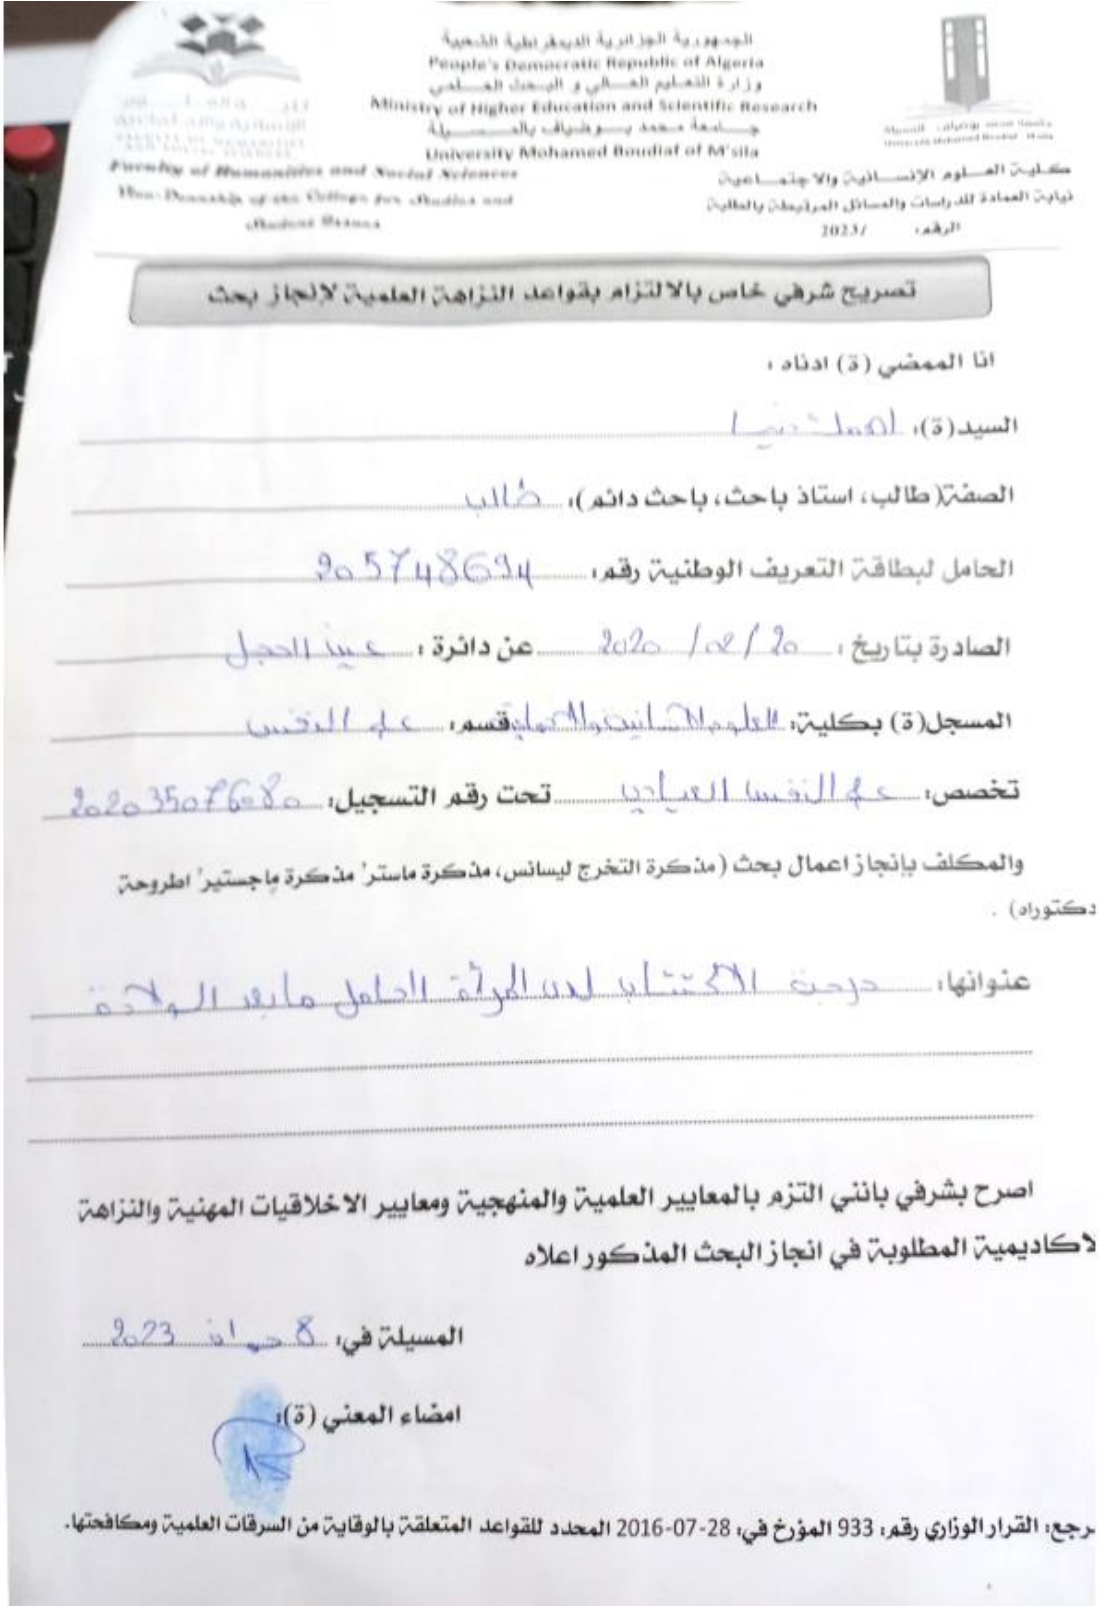 الجمهورية الجزائرية الديمقراطية الشعبية
People's Democratic Republic of Algeria
وزارة التعليم العالي و البحث العلمي
Ministry of Higher Education and Scientific Research
جامعة محمد بوضياف بالمسيلة
University Mohamed Boudiaf of M'sila
Faculty of Humanities and Social Sciences
Vice-Deanship of the College for Studies and
Student
كلية العلوم الإنسانية والاجتماعية
نيابة العمادة للدراسات والمسائل المرتبطة بالطلبة
الرقم: /2023
تصريح شرفي خاص بالالتزام بقواعد النزاهة العلمية لإنجاز بحث
انا الممضي (ة) ادناه :
السيد(ة):
الصفة( طالب، استاذ باحث، باحث دائم): طالب
الحامل لبطاقة التعريف الوطنية رقم: 205748694
الصادرة بتاريخ: 20/02/2020 عن دائرة : عين الحجل
المسجل(ة) بكلية: العلوم الانسانية والاجتماعية قسم: علم النفس
تخصص: علم النفس العيادي تحت رقم التسجيل: 202035076080
والمكلف بإنجاز اعمال بحث (مذكرة التخرج ليسانس، مذكرة ماستر' مذكرة ماجستير' اطروحة
دكتوراه) .
عنوانها: درجة الاكتئاب لدى المرأة الحامل مابعد الولادة
اصرح بشرفي بانني التزم بالمعايير العلمية والمنهجية ومعايير الاخلاقيات المهنية والنزاهة
لاكاديمية المطلوبة في انجاز البحث المذكور اعلاه
المسيلة في: 8 جوان 2023
امضاء المعني (ة):
مرجع: القرار الوزاري رقم: 933 المؤرخ في: 28-07-2016 المحدد للقواعد المتعلقة بالوقاية من السرقات العلمية ومكافحتها.